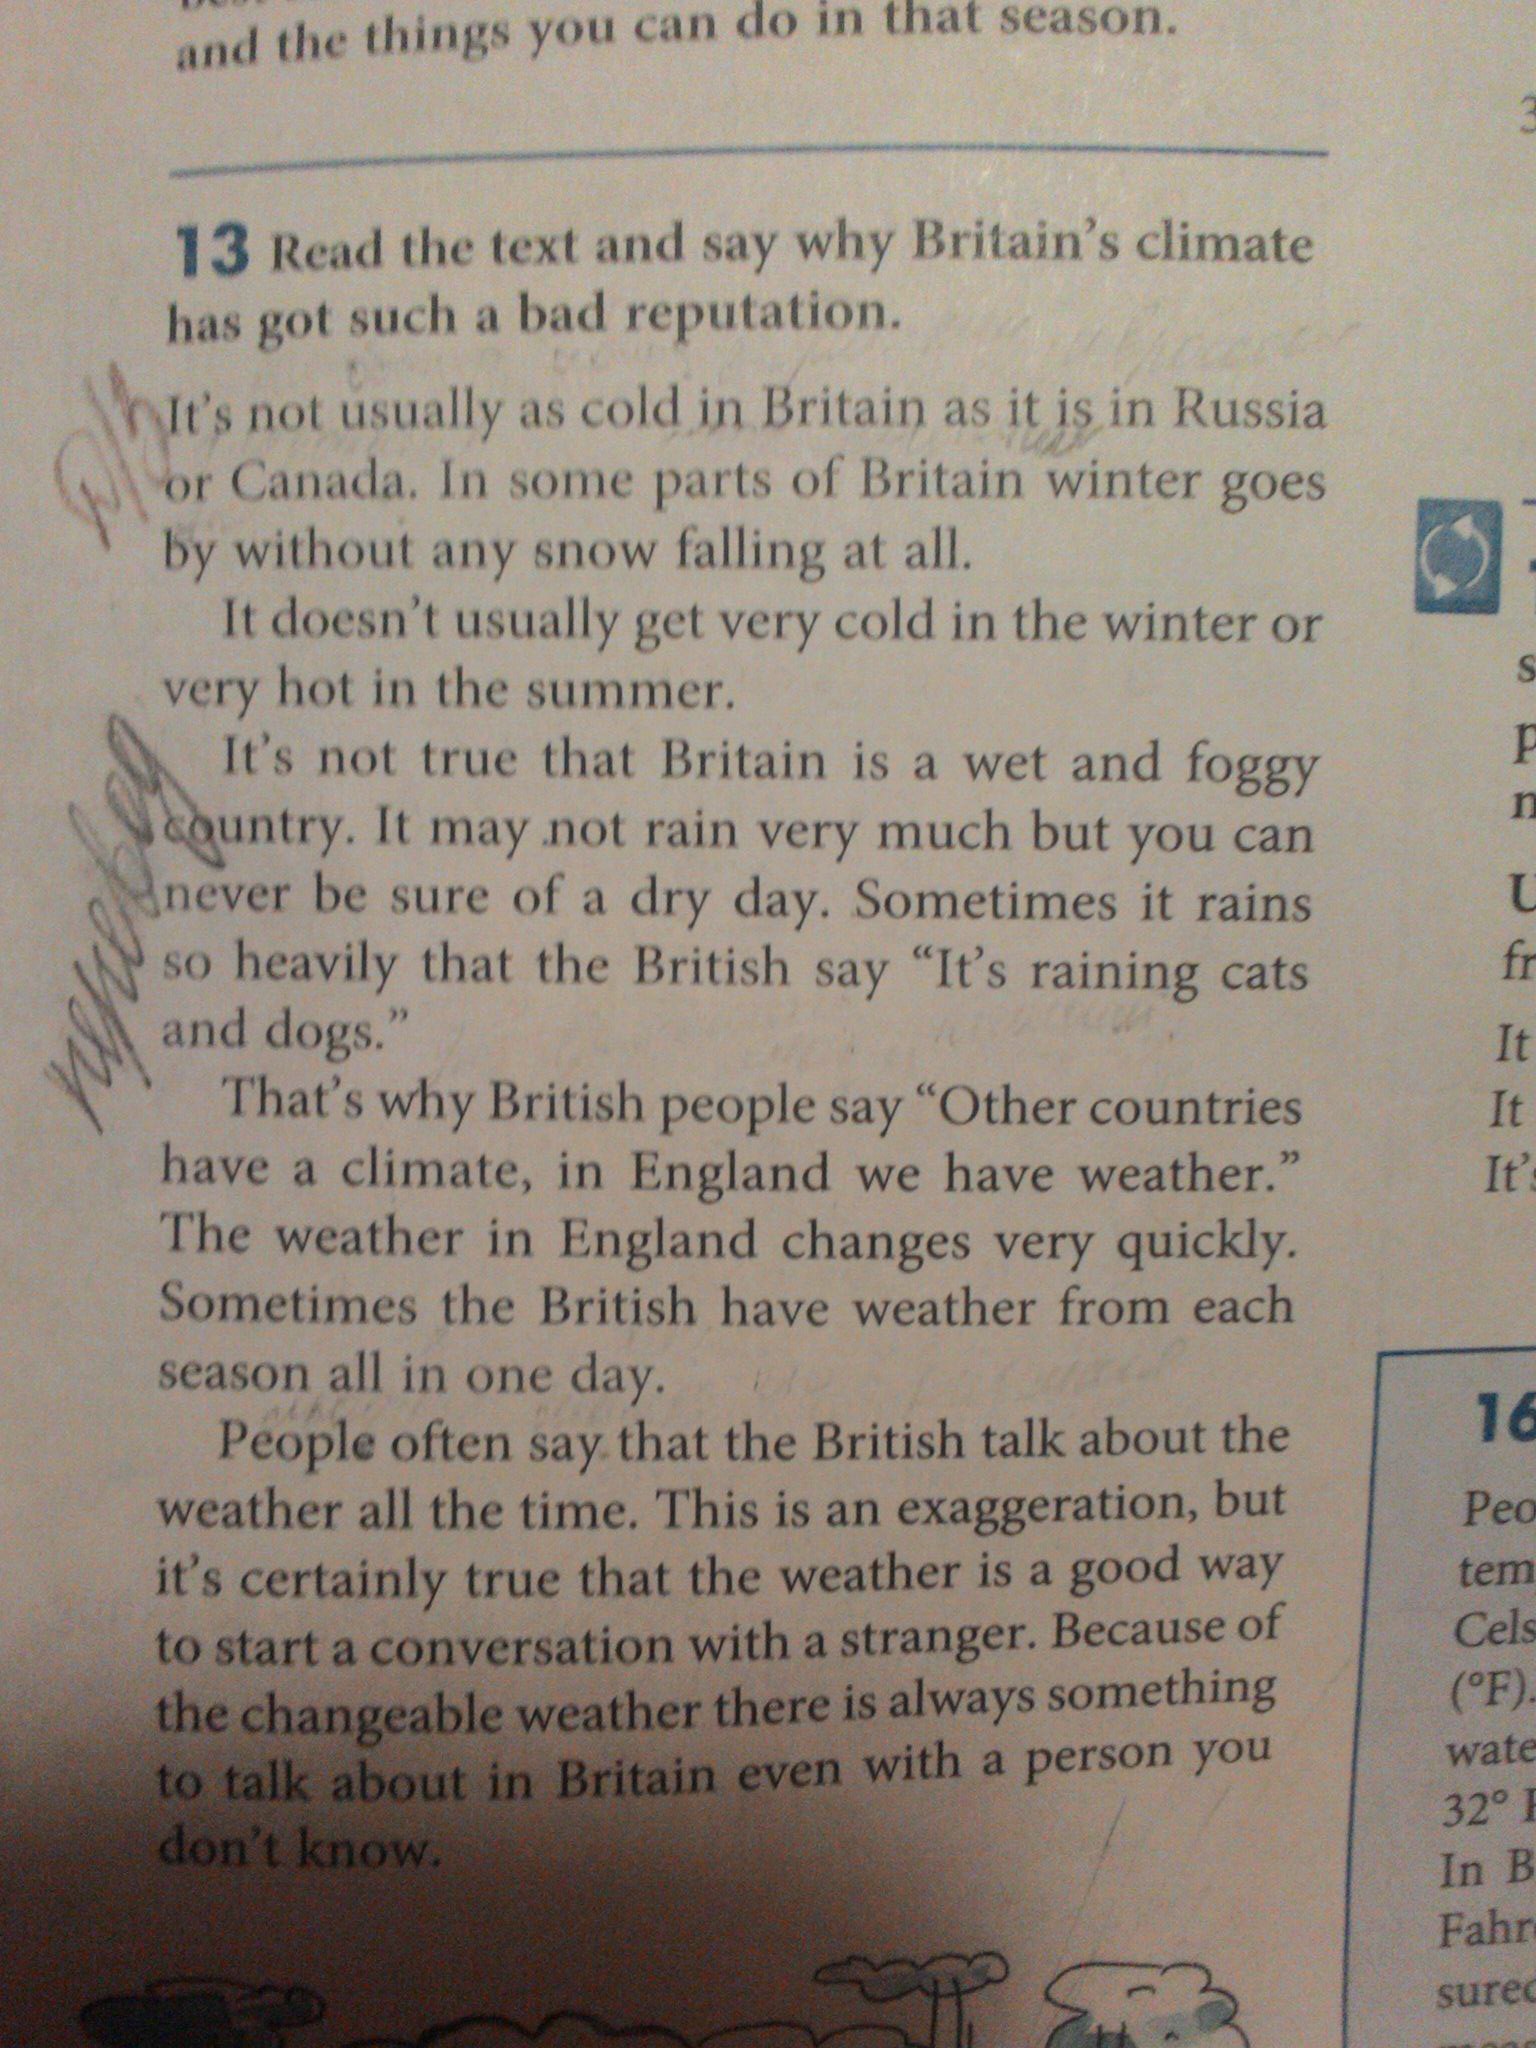 and the things you can do in that season.
13 Read the text and say why Britain's climate
has got such a bad reputation.
It's not usually as cold in Britain as it is in Russia
or Canada. In some parts of Britain winter goes
by without any snow falling at all.
It doesn't usually get very cold in the winter or
very hot in the summer.
It's not true that Britain is a wet and foggy
country. It may not rain very much but you can
never be sure of a dry day. Sometimes it rains
so heavily that the British say “It's raining cats
and dogs.”
That's why British people say “Other countries
have a climate, in England we have weather.”
The weather in England changes very quickly.
Sometimes the British have weather from each
season all in one day.
People often say that the British talk about the
weather all the time. This is an exaggeration, but
it's certainly true that the weather is a good way
to start a conversation with a stranger. Because of
the changeable weather there is always something
to talk about in Britain even with a person you
don't know.
It
It
It's
16
(°F).
32°
In